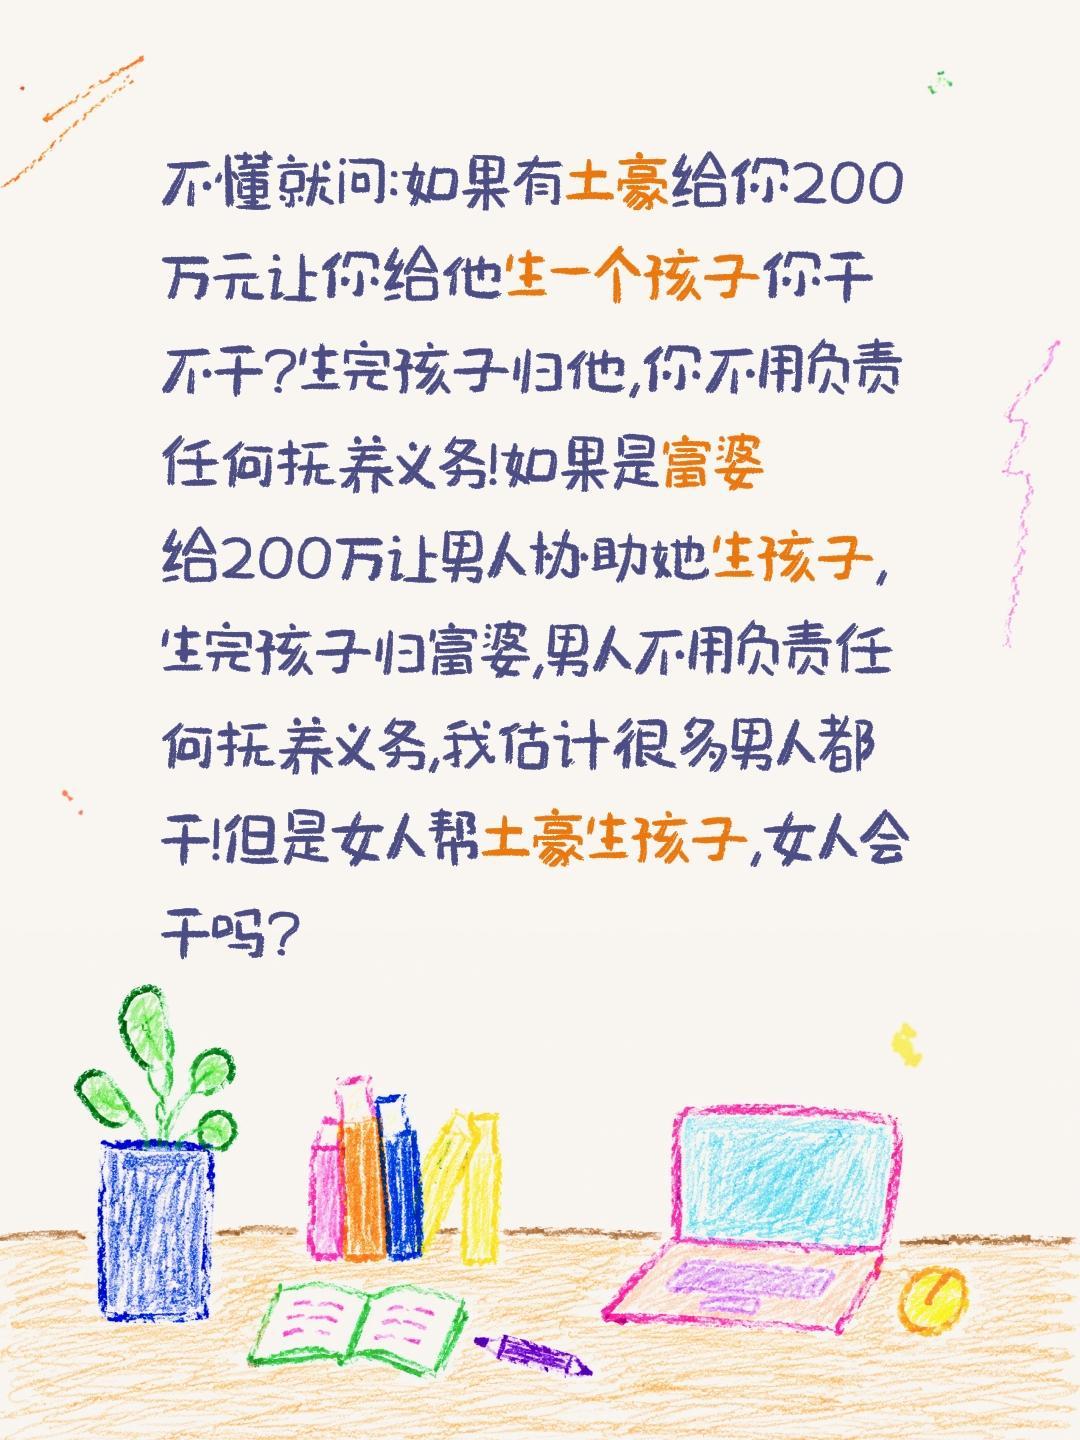 不懂就问:如果有土豪给你200
万元让你给他生一个孩子你干
不干?生完孩子归他,你不用负责
任何抚养义务!如果是富婆
给200万让男人协助她生孩子,
生完孩子归富婆,男人不用负责任
何抚养义务,我估计很多男人都
干!但是女人帮土豪生孩子,女人会
干吗?